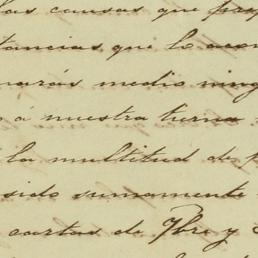 las causas que
tancias que lo
narás medio
á nuestra tierna
la multitud de
sido sumamente
cartas de 7bre y